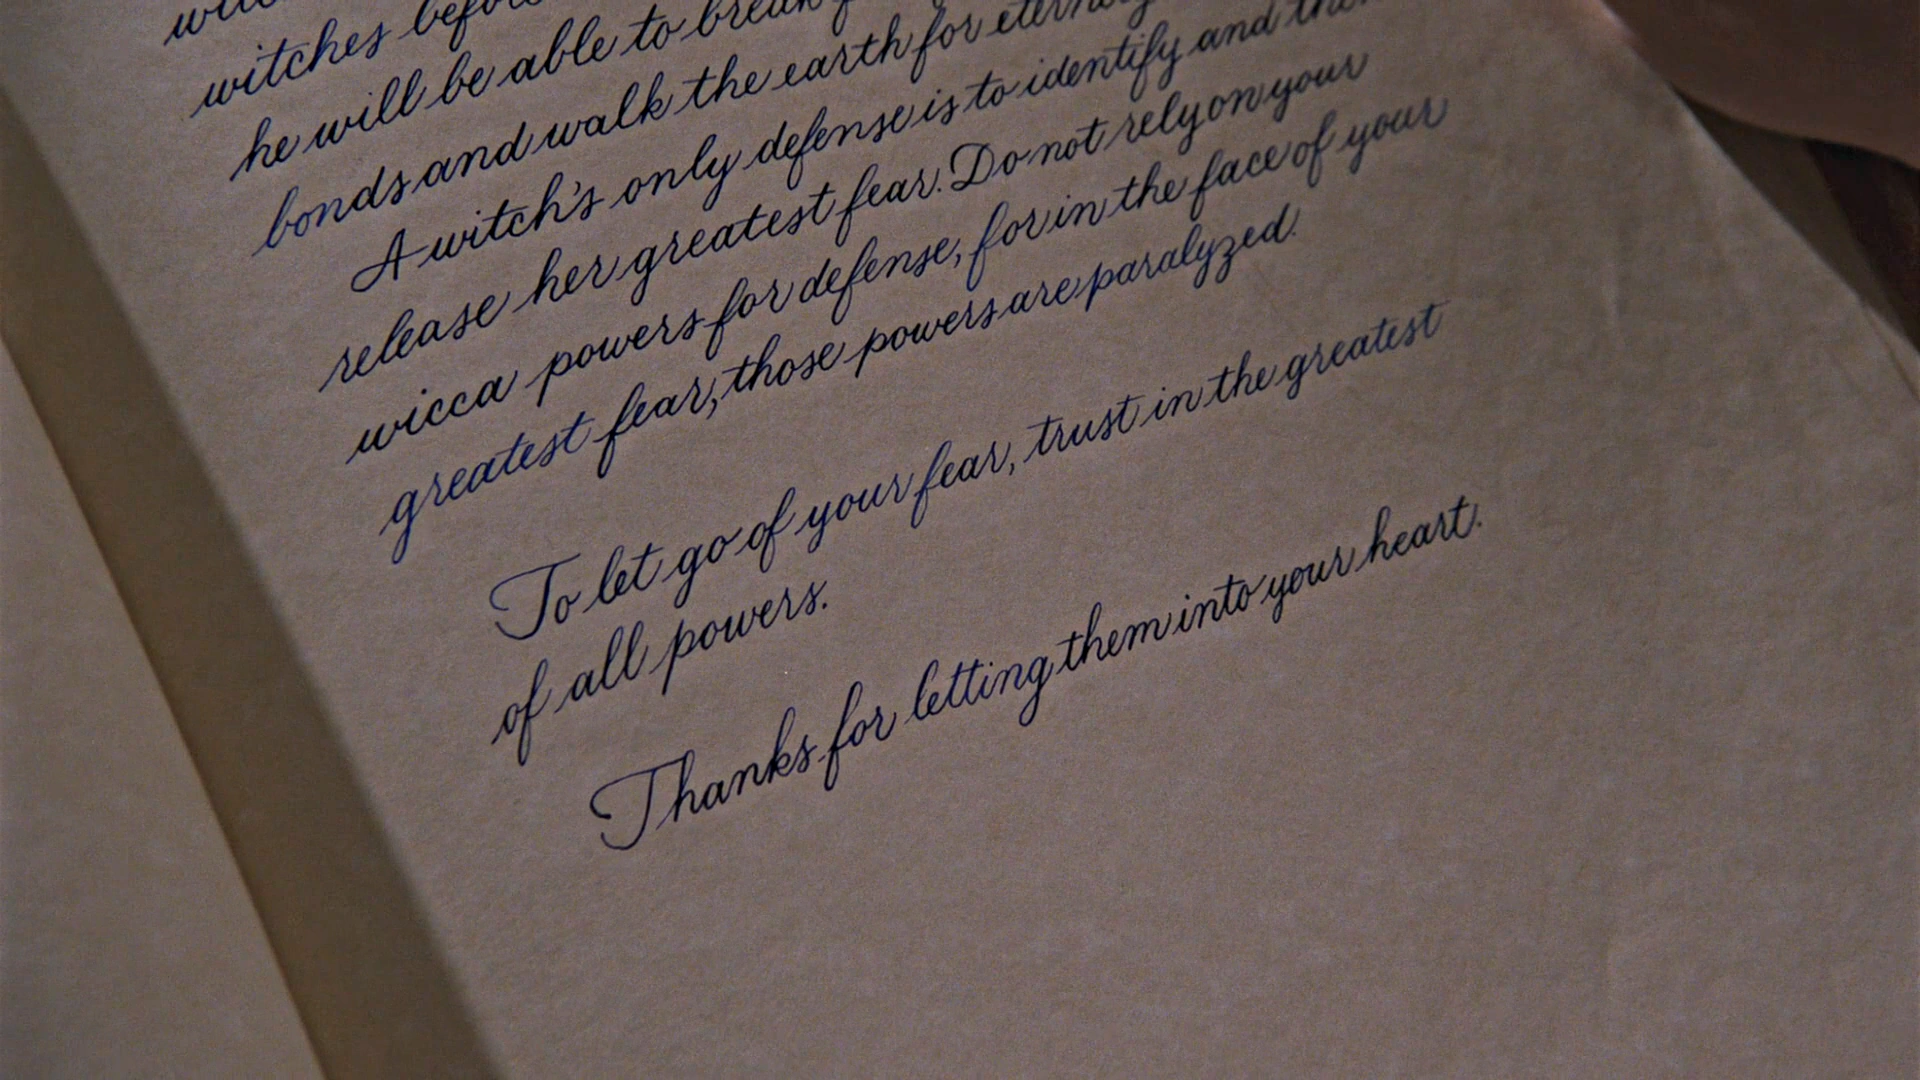 witches before
he will be able to break
bonds and walk the earth for eternity
A witch's only defense is to identify and then
release her greatest fear. Do not rely on your
wicca powers for defense, for in the face of your
greatest fear, those powers are paralyzed.
To let go of your fear, trust in the greatest
of all powers.
Thanks for letting them into your heart.